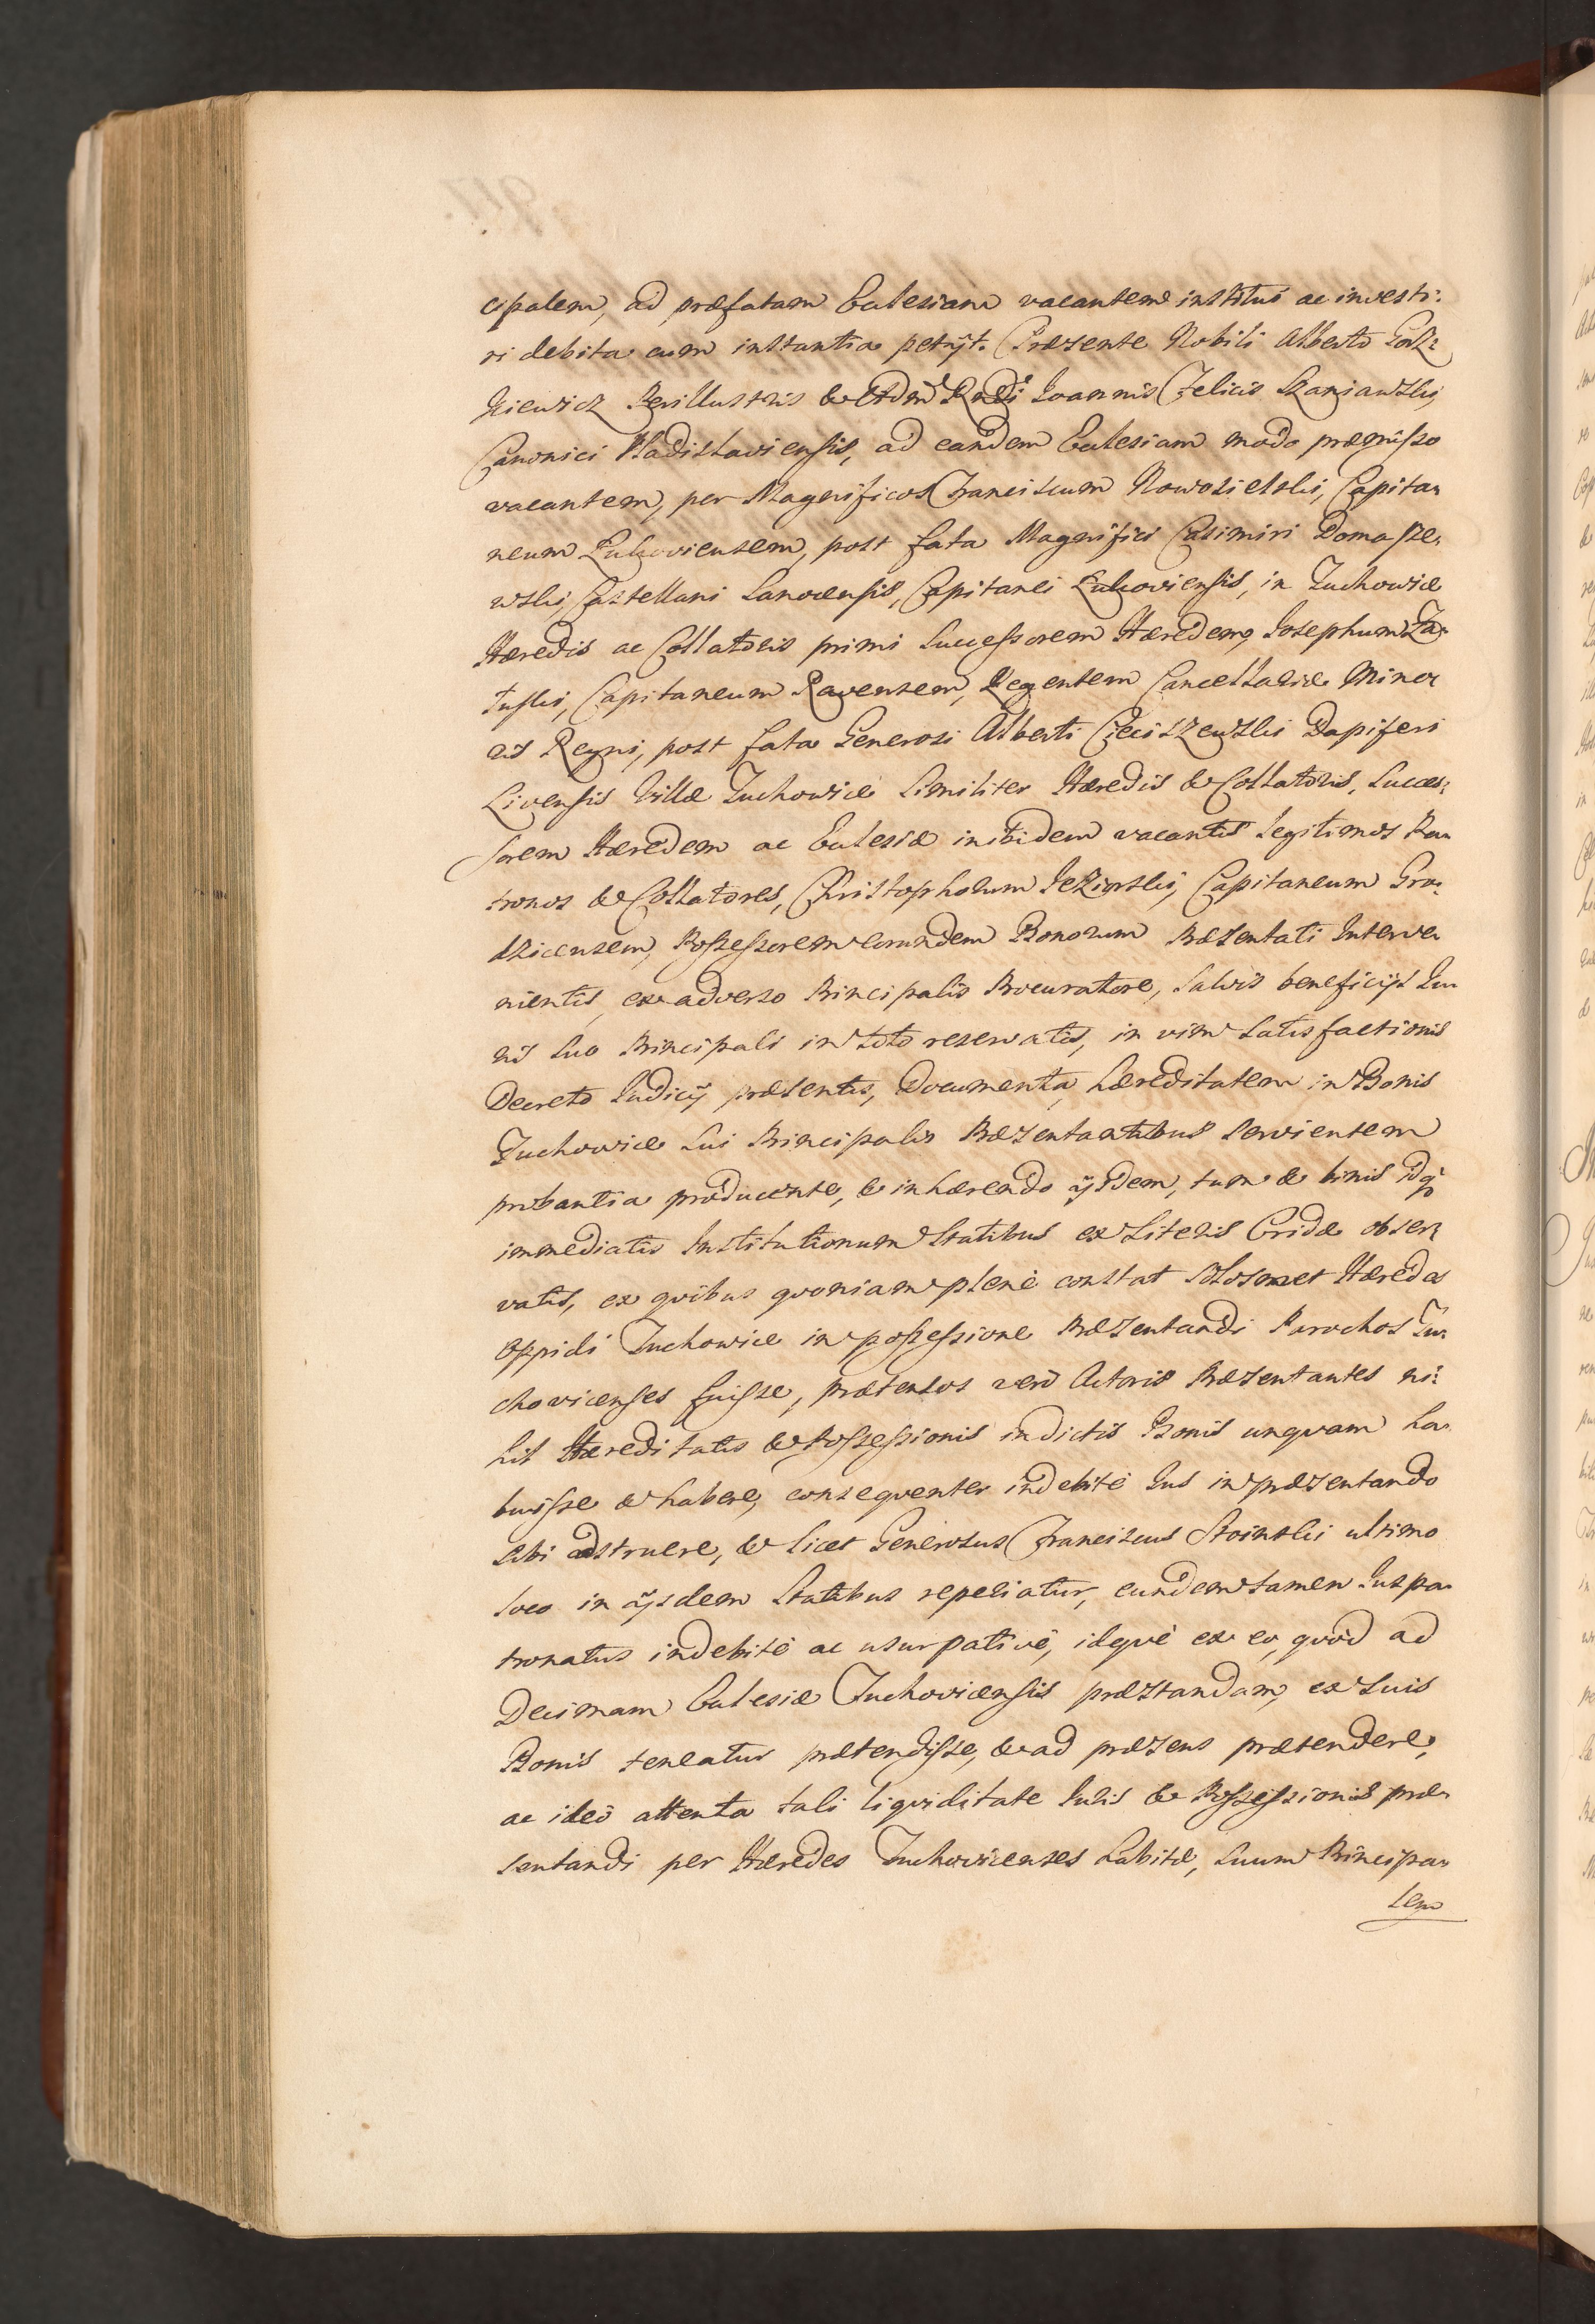 cipalem, ad præfatam Eclesiam vacantem institui ac investi:
ri debita cum instantia petÿt. Præsente Nobili Alberto Gosz:
kiewicz Perillustris & Adm Rndi Joannis Felicis Szaniawski,
Canonici Vladislaviensis, ad eandem Eclesiam modo præmisso
vacantem, per Magnificos Franciscum Nowosielski, Capita:
neum Lukoviensem, post fata Magnifici Casimiri Domasze:
wski, Castellani Sanocensis, Capitanei Lukoviensis, in Tuchowice
Hæredis ac Collatoris primi Successorem Hæredem, Josephum Za:
łuski, Capitaneum Ravensem, Regentem Cancellariæ Mino:
ris Regni, post fata Generosi Alberti Cieciszewski Dapiferi
Livensis Villæ Tuchowice Similiter Hæredis & Collatoris, Succes:
sorem Hæredem ac Eclesiæ inibidem vacantis legitimos Pa:
tronos & Collatores, Christophorum Jezierski, Capitaneum Gro:
dzicensem, Possessorem eorundem Bonorum Præsentati Interve:
nientis, ex adverso Principalis Procuratore, Salvis beneficÿs Iu:
ris Suo Principali in toto reservatis, in vim Satisfactionis
Decreto Judicÿ præsentis, Documenta, hæreditatem in Bonis
Tuchowice Sui Principalis Præsentantibus Servientem
probantia producente, & inhærendo ÿsdem, tum & binis idq
immediatis Institutionum Statibus ex Literis Cridæ obser:
vatis, ex quibus quoniam plenè constat Solosmet Hæredes
Oppidi Tuchowice in possessione Præsentandi Parochos Tu:
chovicenses fuisse, prætensos verò Actoris Præsentantes ni:
hil Hæreditatis & Possessionis in dictis Bonis unquam ha:
buisse & habere, consequenter indebitè Jus in præsentando
Sibi adstruere, & licet Generosus Franciscus Stoinski ultimo
loco in ÿsdem Statibus reperiatur, eundem tamen Juspa:
tronatus indebitè ac usurpativè, idque ex eo, quòd ad
Decimam Eclesiæ Tuchovicensis præstandam, ex Suis
Bonis teneatur prætendisse, & ad præsens prætendere,
ac ideò attenta tali liquiditate Juris & Possessionis præ:
sentandi per Hæredes Tuchovicenses habitæ, Suum Principa:
lem